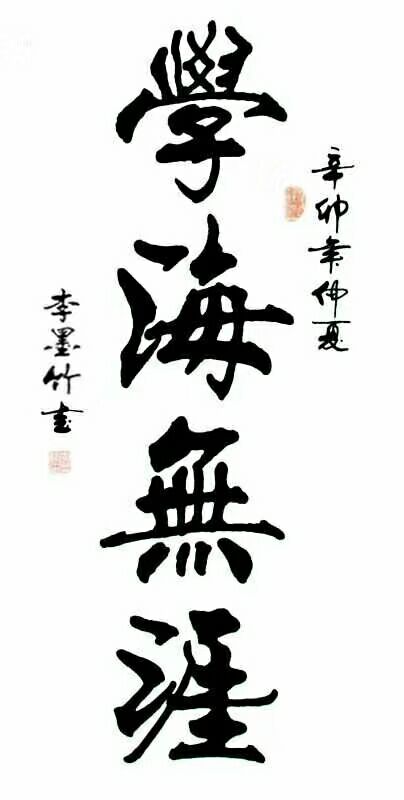 辛卯年仲夏
學海無涯
李墨竹書